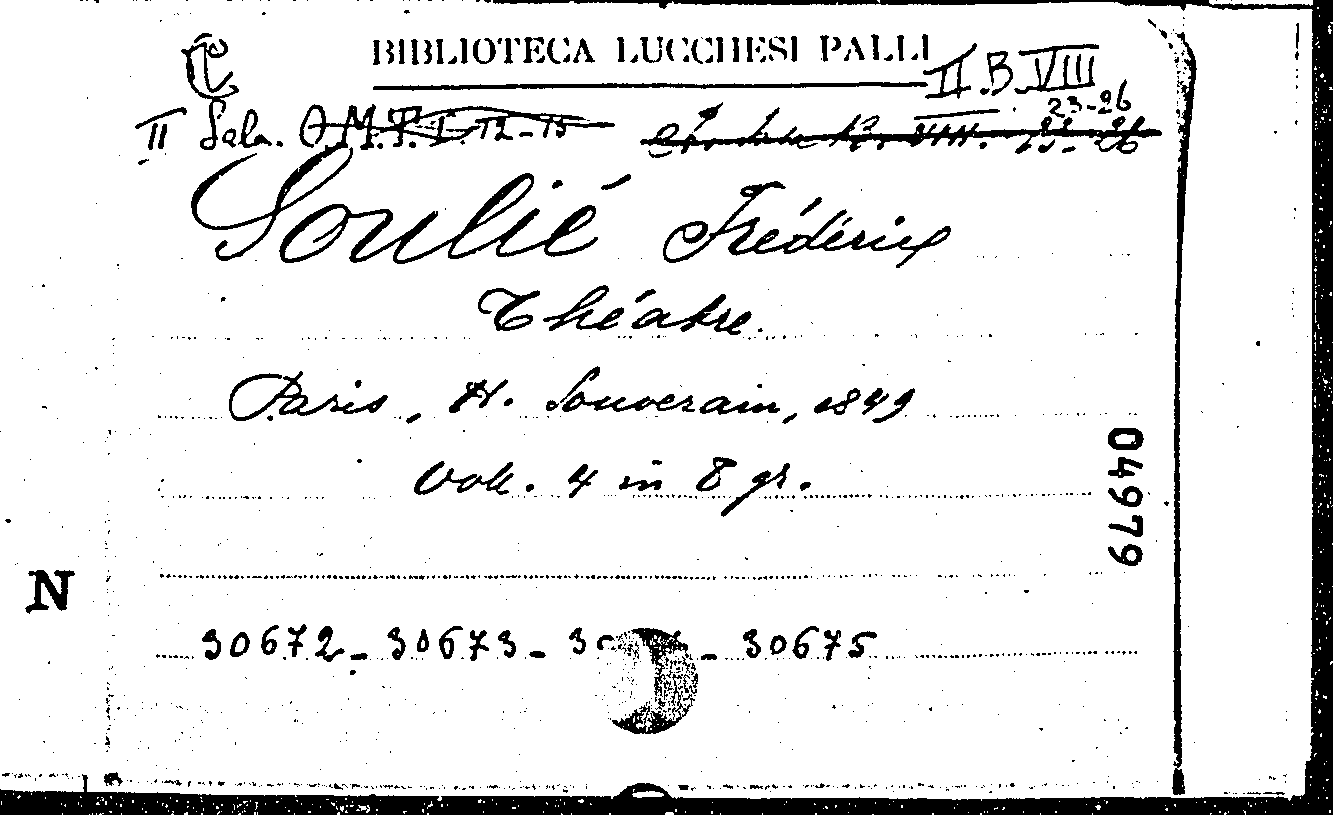 BIBLIOTECA LUCCHESI PALLI
II.B.VIII
23-26
II Sala. O.M.P.I.12-15
Soulié Frédéric
Théatre.
Paris, H. Souverain, 1849
Voll. 4 in 8 gr.
04979
N
30672 - 30673 - 30 - 30675